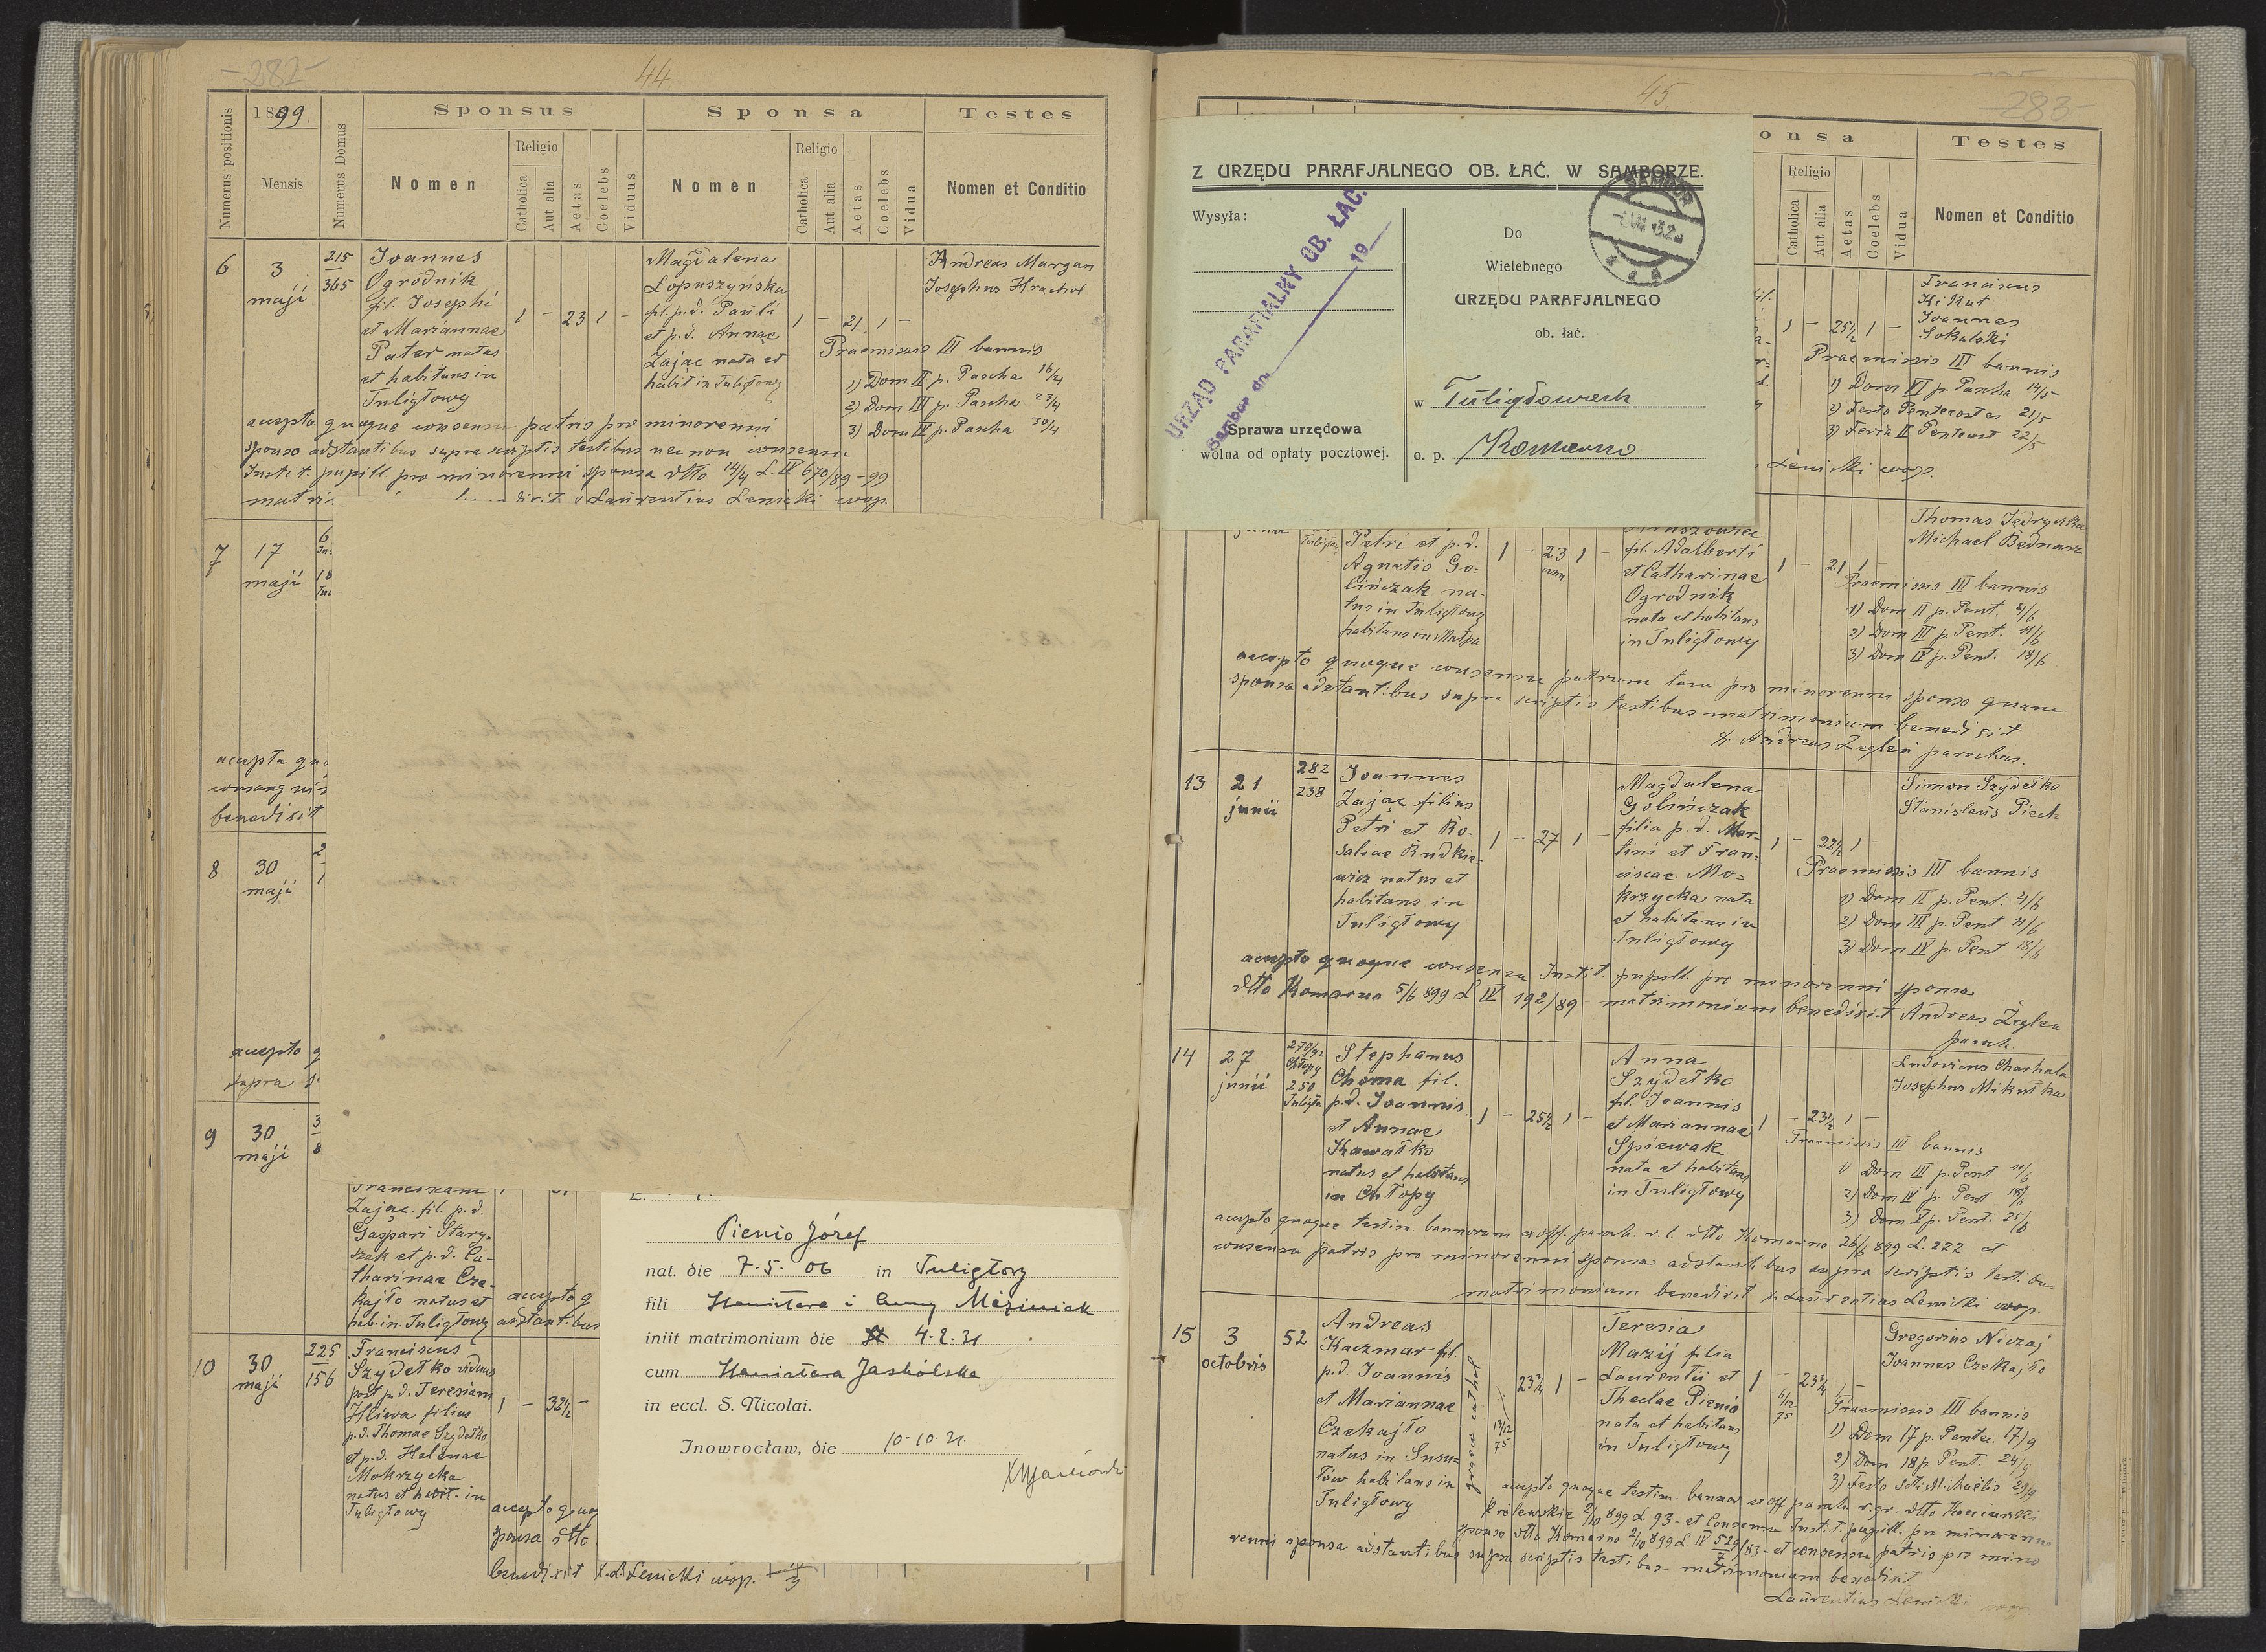 -282-
44.
Numerus positionis
1899
Mensis
Numerus Domus
Sponsus
Sponsa
Testes
Nomen
Religio
Catholica
Aut alia
Aetas
Coelebs
Viduus
Nomen
Religio
Catholica
Aut alia
Aetas
Coelebs
Vidua
Nomen et Conditio
6
3
maji
215
365
Joannes
Ogrodnik
fil. Josephi
et Mariannae
Pater natus
et habitans in
Tuligłowy
1 - 23 1 -
Magdalena
Łopuszyńska
fil. p.d. Pauli
et p.d. Annae
Zając nata et
habit in Tuligłowy
1 - 21 1 -
Andreas Margan
Josephus Hrachol
Praemissis III bannis
1) Dom II p. Pascha 16/4
2) Dom III p. Pascha 23/4
3) Dom IV p. Pascha 30/4
accepto quoque consensu patris pro minorenni
sponso adstantibus supra scriptis testibus nec non consensu
Instit. pupill. pro minorenni sponsa dtto 14/4 L. IV 670/89-99
Laurentius Lenicki coop.
7
17
maji
accepta quo
consang
benedixit
8
30
maji
accepto q
supra
9
30
maji
3
8
Franciscam
Zając fil. p.d.
Gaspari Stary-
szak et p.d. Ca-
tharinae Cze-
kajło natus et
hab. in Tuligłowy
accepto q
adstantibus
10
30
maji
225
156
Franciscus
Szydełko viduus
post p.d. Teresiam
Hliwa filius
p.d. Thomae Szydełko
et p.d. Helenae
Mokrzycka
natus et habit. in
Tuligłowy
1 - 32 1/2 -
accepto quoq
sponsa dtto
benedixit X. L. Lenicki coop.
Pienio Józef
nat. die 7.5.06 in Tuligłowy
fili Stanisława i Anny Méziniak
iniit matrimonium die 4.2.31
cum Stanisława Jaskólska
in eccl. S. Nicolai.
Inowrocław, die 10.10.31.
45.
-283-
Z URZĘDU PARAFJALNEGO OB. ŁAĆ. W SAMBORZE.
Wysyła:
URZĄD PARAFIALNY OB. ŁAC.
Sambor dn. 19
SAMBOR
Do
Wielebnego
URZĘDU PARAFJALNEGO
ob. łać.
w Tuligłowach
o. p. Komarno
Sprawa urzędowa
wolna od opłaty pocztowej.
onsa
Testes
Religio
Catholica
Aut alia
Aetas
Coelebs
Vidua
Nomen et Conditio
1 - 25 1/2 1 -
Franciscus
Kikut
Joannes
Sokalski
Praemissis III bannis
1) Dom VI p. Pascha 14/5
2) Festo Pentecostes 21/5
3) Feria II Pentecost 22/5
Lenicki coop.
Petri et p.d.
Agnetis Go-
lińczak na-
tus in Tuligłowy
habitans in Małpa
1 - 23 1 -
fil. Adalberti
et Catharinae
Ogrodnik
nata et habitans
in Tuligłowy
1 - 21 1 -
Thomas Jędryszka
Michael Bednarz
Praemissis III bannis
1) Dom II p. Pent. 4/6
2) Dom III p. Pent. 11/6
3) Dom IV p. Pent. 18/6
accepto quoque consensu patrum tam pro minorenni sponso quam
sponsa adstantibus supra scriptis testibus matrimonium benedixit
X. Andreas Żegleń parochus.
13
21
junii
282
238
Joannes
Zając filius
Petri et Ro-
saliae Rudkie-
wicz natus et
habitans in
Tuligłowy
1 - 27 1 -
Magdalena
Golińczak
filia p.d. Mar-
tini et Fran-
ciscae Mo-
krzycka nata
et habitans in
Tuligłowy
1 - 22 1/2 1 -
Simon Szydełko
Stanislaus Piech
Praemissis III bannis
1) Dom II p. Pent. 4/6
2) Dom III p. Pent 11/6
3) Dom IV p. Pent 18/6
accepto quoque consensu Instit. pupill. pro minorenni sponsa
dtto Komarno 5/6 899 L IV 192/89 matrimonium benedixit Andreas Żegleń
paroch.
14
27
junii
270/92
Chłopy
250
Tuligło.
Stephanus
Choma fil.
p.d. Joannis
et Annae
Kawałko
natus et habitans
in Chłopy
1 - 25 1/2 1 -
Anna
Szydełko
fil. Joannis
et Mariannae
Spiewak
nata et habitans
in Tuligłowy
1 - 23 1/2 1 -
Ludovicus Charhala
Josephus Mikułka
Praemissis III bannis
1) Dom III p. Pent 11/6
2) Dom IV p. Pent 18/6
3) Dom V p. Pent. 25/6
accepto quoque testim. bannorum ex off. paroch. r.l. dtto Komarno 26/6 899 L. 222 et
consensu patris pro minorenni sponsa adstantibus supra scriptis testibus
matrimonium benedixit X. Laurentius Lenicki coop.
15
3
octobris
52
Andreas
Kaczmar fil.
p.d. Joannis
et Mariannae
Czekajło
natus in Susu-
łów habitans in
Tuligłowy
graeco cathol
23 3/4 1 -
13/12
75
Teresia
Mazij filia
Laurentii et
Theclae Pienio
nata et habitans
in Tuligłowy
1 - 23 3/4 1 -
6/12
75
Gregorius Niczaj
Joannes Czekajło
Praemissis III bannis
1) Dom 17 p. Pentec. 17/9
2) Dom 18 p. Pent. 24/9
3) Festo Scti Michaëlis 29/9
accepto quoque testim. bannor ex off paroch r.gr. dtto
królewskie 2/10 899 L. 93 - et consensu Instit. pupill. pro minorenni
sponso dtto Komarno 2/10 899 L. IV 529/83 - et consensu patris pro mino
renni sponsa adstantibus supra scriptis testibus matrimonium benedixit
Laurentius Lenicki coop.